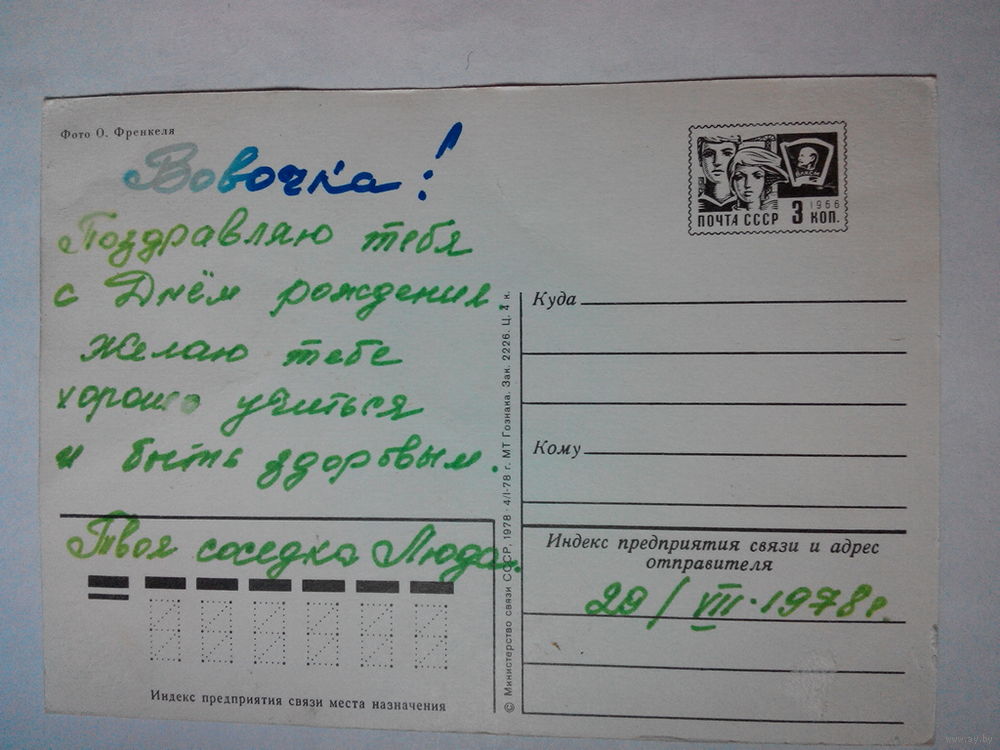 Фото О. Френкеля
Вовочка!
Поздравляю тебя
с Днём рождения.
Желаю тебе
хорошо учиться
и быть здоровым.
Твоя соседка Люда.
Индекс предприятия связи места назначения
© Министерство связи СССР, 1978 · 4/I-78 г. МТ Гознака. Зак. 2226. Ц. 4 к.
ВЛКСМ
1966
ПОЧТА СССР 3 КОП.
Куда
Кому
Индекс предприятия связи и адрес
отправителя
29/VIII.1978г.
www.ay.by